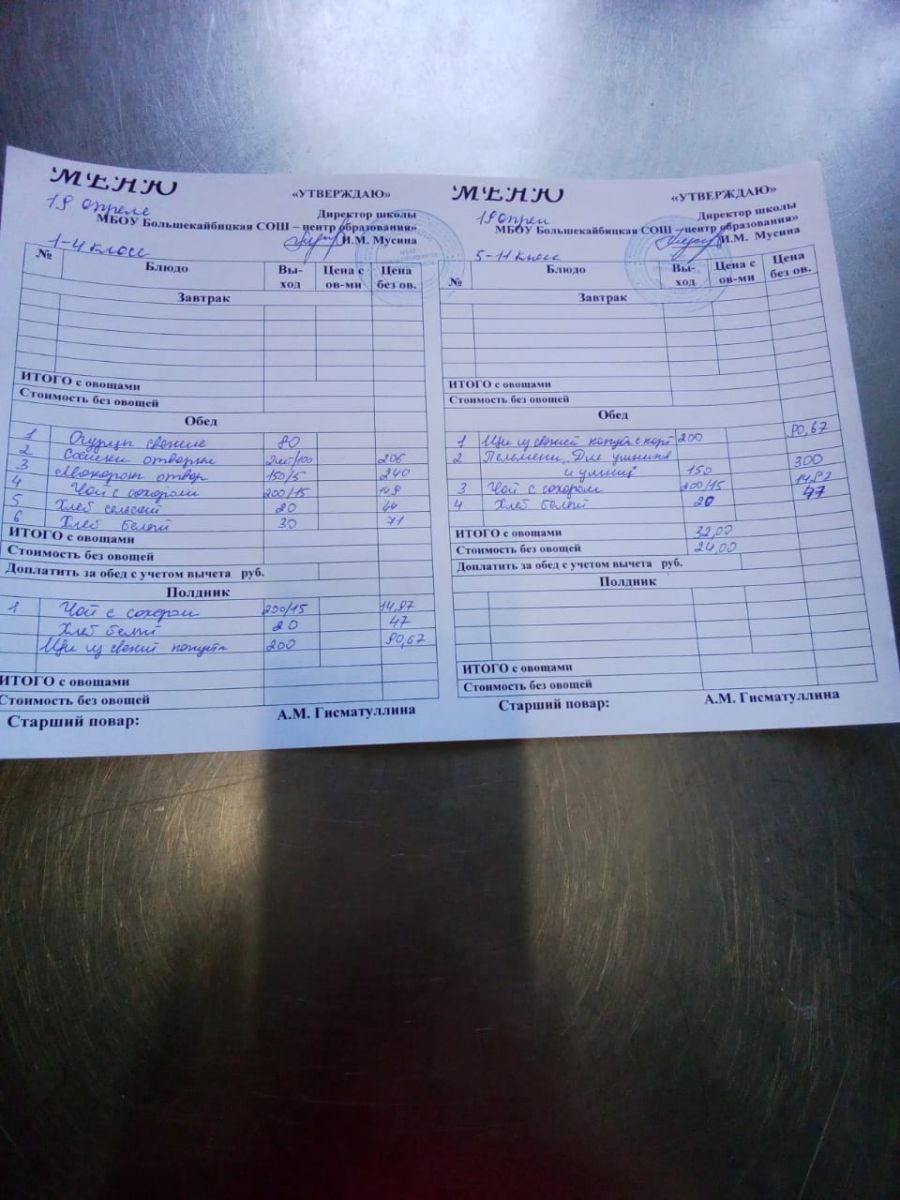 МЕНЮ
«УТВЕРЖДАЮ»
19 апреле
Директор школы
МБОУ Большекайбицкая СОШ – центр образования»
И.М. Мусина
1-4 класс
№ Блюдо Вы-ход Цена с ов-ми Цена без ов.
Завтрак
ИТОГО с овощами
Стоимость без овощей
Обед
1 Огурцы свежие 80
2 Сосиски отворны 2шт/100 206
3 Макорон отвор 150/5 240
4 Чай с сахором 200/15 149
5 Хлеб сельский 20 44
6 Хлеб белый 30 71
ИТОГО с овощами
Стоимость без овощей
Доплатить за обед с учетом вычета руб.
Полдник
1 Чай с сахором 200/15 14,87
Хлеб белый 20 47
Щи из свежий капуста 200 80,67
ИТОГО с овощами
Стоимость без овощей
Старший повар: А.М. Гисматуллина
МЕНЮ
«УТВЕРЖДАЮ»
19 апрел
Директор школы
МБОУ Большекайбицкая СОШ – центр образования»
И.М. Мусина
5-11 класс
№ Блюдо Вы-ход Цена с ов-ми Цена без ов.
Завтрак
ИТОГО с овощами
Стоимость без овощей
Обед
1 Щи из свежей капуста с карт 200 80,67
2 Пельмени "Для умника
и умниц" 150 300
3 Чай с сахором 200/15 14,87
4 Хлеб белый 20 47
ИТОГО с овощами 32,00
Стоимость без овощей 24,00
Доплатить за обед с учетом вычета руб.
Полдник
ИТОГО с овощами
Стоимость без овощей
Старший повар: А.М. Гисматуллина